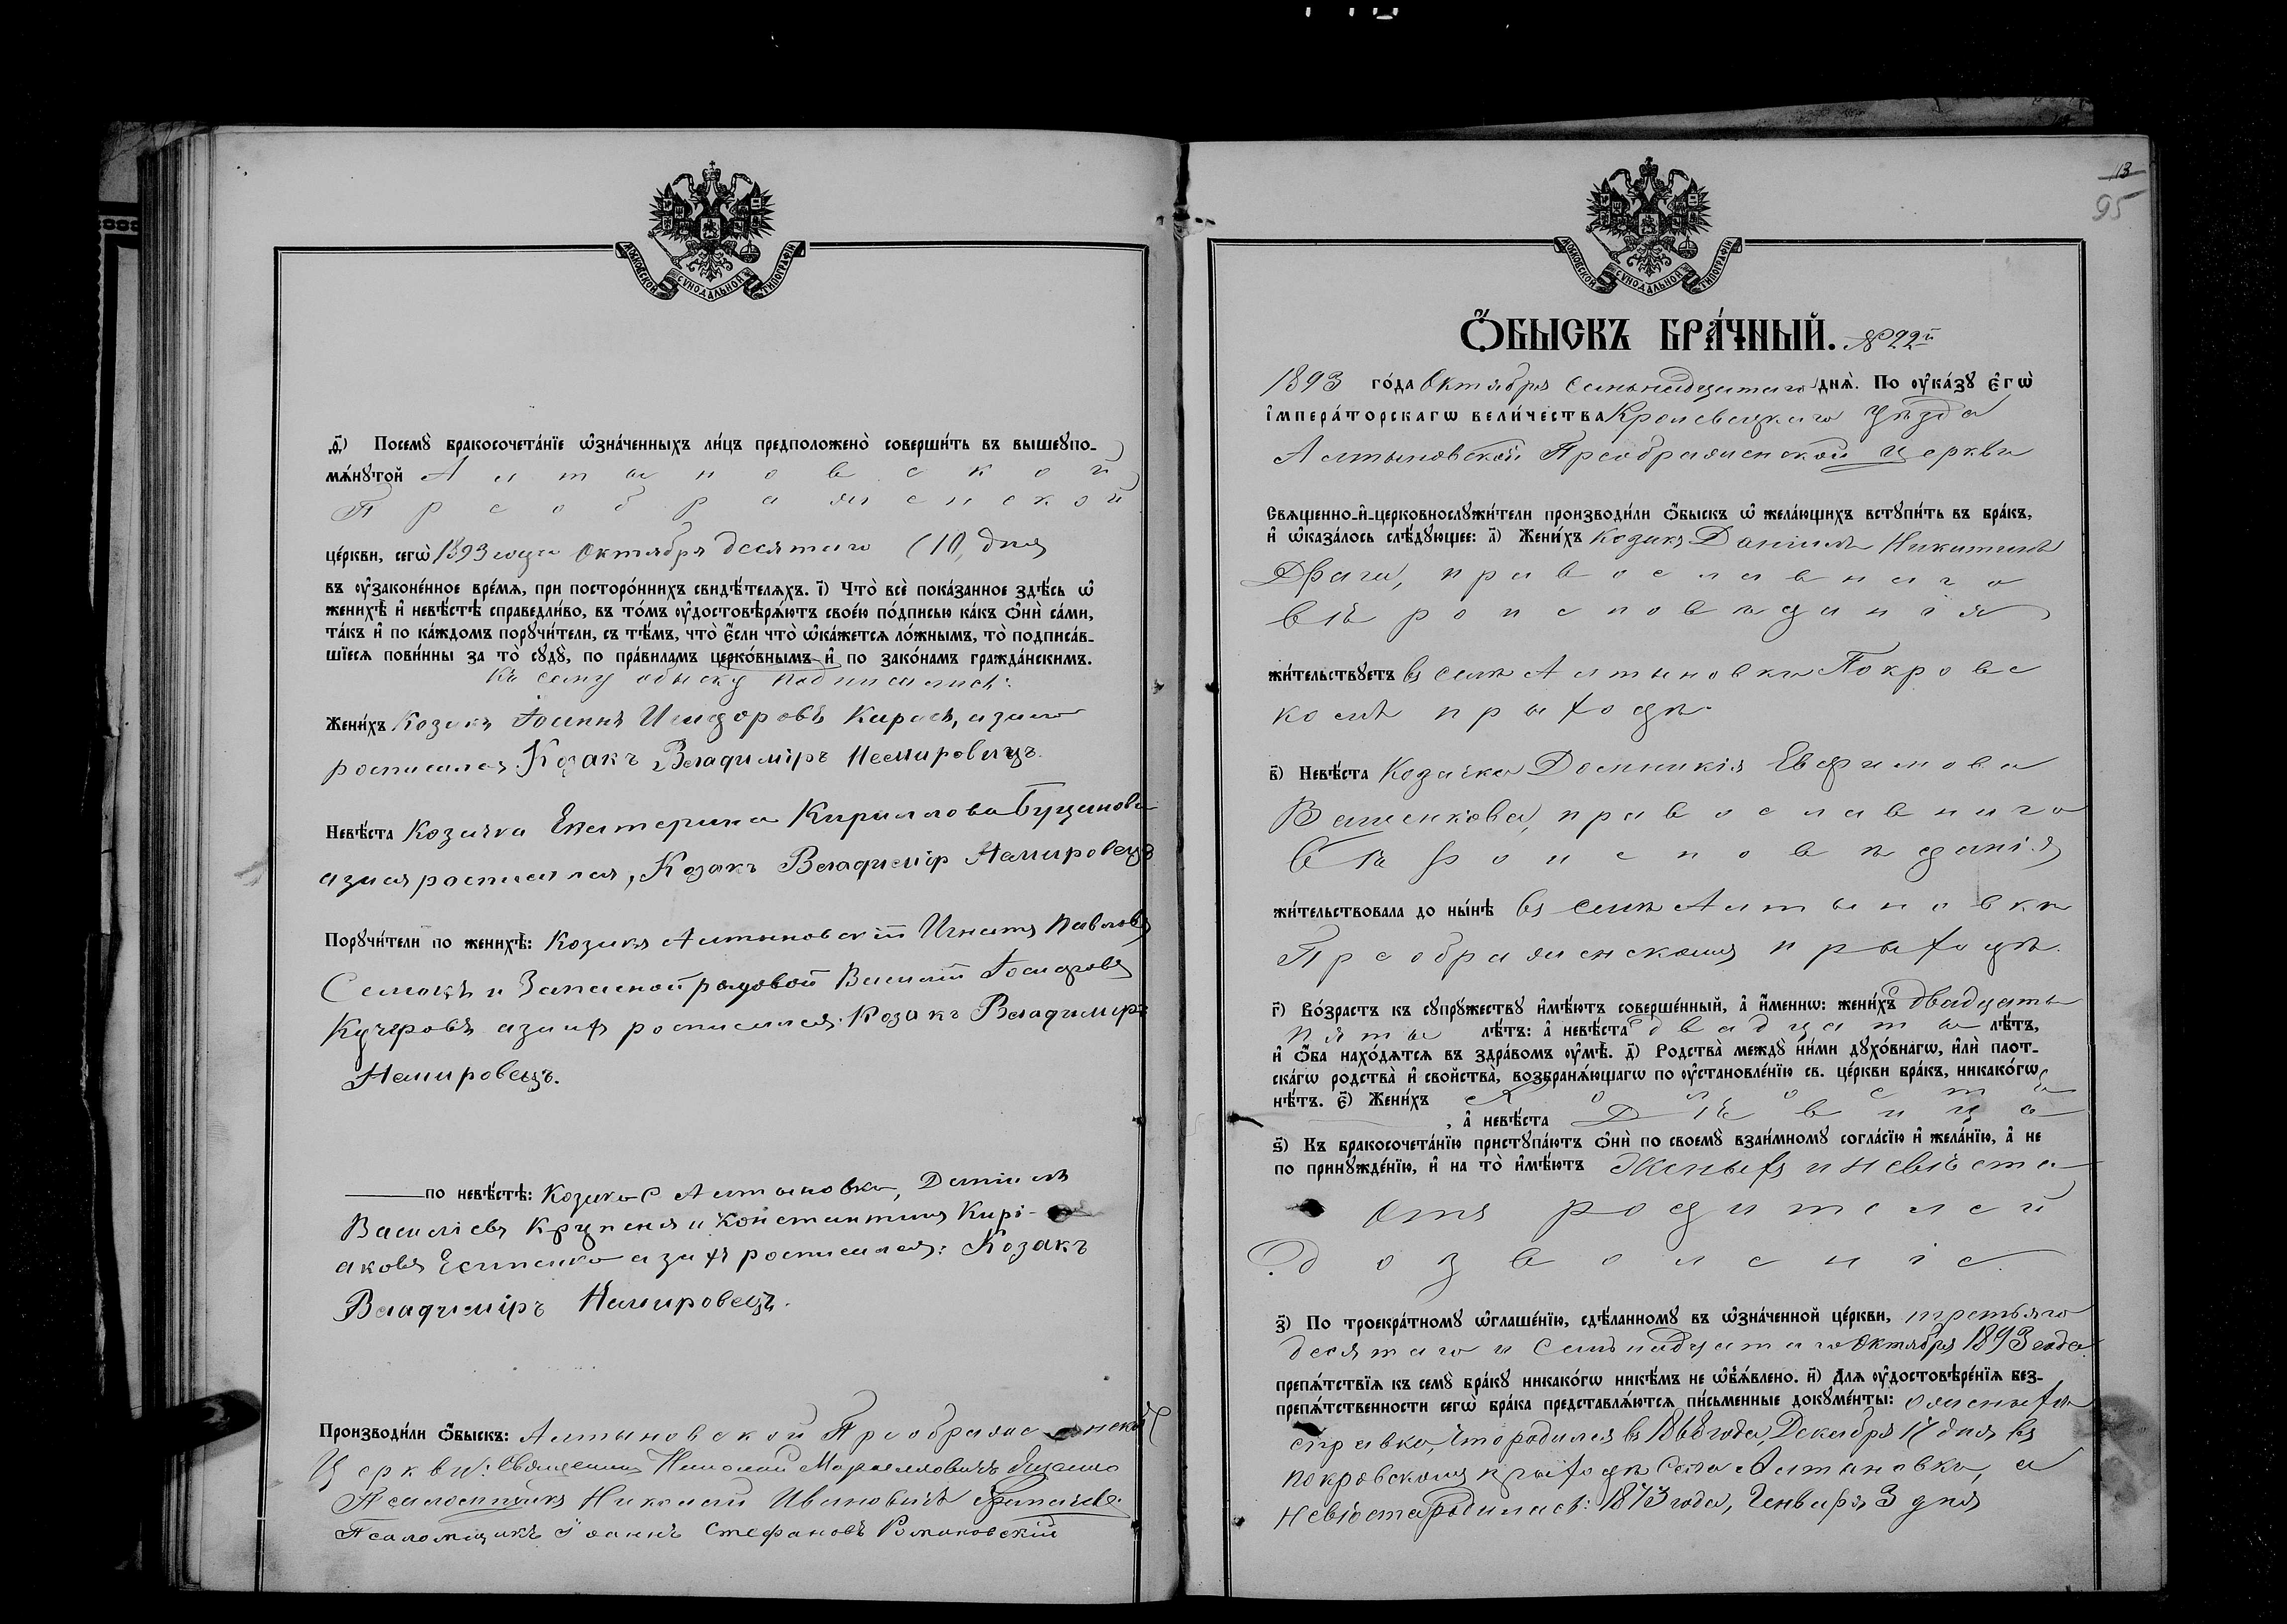 МОСКОВСКОЙ СѴНОДАЛЬНОЙ ТИПОГРАФІИ
д҃і) Посемꙋ̀ бракосочета́нїе ѡ҆зна́ченныхъ ли́цъ предположено̀ соверши́ть въ вышеꙋпо-
мѧ́нꙋтой Алтыновской
Преображенской
це́ркви, сегѡ̀ 1893 года Октября десятаго (10) дня
въ ᲂу҆законе́нное вре́мѧ, при посторо́ннихъ свидѣ́телѧхъ. і҃) Что̀ всѐ пока́занное здѣ́сь ѡ҆
женихѣ̀ и҆ невѣ́стѣ справедли́во, въ то́мъ ᲂу҆достовѣрѧ́ютъ свое́ю по́дписью ка́къ ѻ҆нѝ са́ми,
та́къ и҆ по ка́ждомъ порꙋчи́тели, съ тѣ́мъ, что̀ є҆́сли что̀ ѡ҆ка́жетсѧ ло́жнымъ, то̀ подписа́в-
шїесѧ пови́нны за то̀ сꙋдꙋ̀, по пра́виламъ церко́внымъ и҆ по зако́намъ гражда́нскимъ.
Къ сему обыску подписались:
Жени́хъ Козакъ Іоаннъ Исидоровъ Карась, а за него
росписался Козакъ Владиміръ Немировецъ.
Невѣ́ста Козачка Екатерина Кириллова Буцанова
а за нея росписался, Козакъ Владиміръ Немировецъ
Порꙋчи́тели по женихѣ̀: Козакъ Алтыновскій Игнатъ Павловъ
Семакъ и Запасной рядовой Василій Іосифовъ
Кучеровъ а за ихъ росписался: Козакъ Владимиръ
Немировецъ.
по невѣ́стѣ: Козаки с Алтыновки, Даніилъ
Василіевъ Крупеня и Константинъ Кирі-
аковъ Есипенко а за ихъ росписался: Козакъ
Владиміръ Немировецъ.
Производи́ли ѻ҆́быскъ: Алтыновской Преображенской
Церкви: Священникъ Николай
Псаломщикъ Николай Ивановичъ
Псаломщикъ Іоаннъ Стефановъ
МОСКОВСКОЙ СѴНОДАЛЬНОЙ ТИПОГРАФІИ
13
95
Ѻ҆́БЫСКЪ БРА́ЧНЫЙ. №22й
1893 го́да Октября семьнадцатаго днѧ̀. По ᲂу҆ка́зꙋ є҆гѡ̀
і҆мпера́торскагѡ вели́чества Кролевецкаго уѣзда
Алтыновской Преображенской церкви
Свѧщенно-и҆-церковнослꙋжи́тели производи́ли ѻ҆́быскъ ѡ҆ жела́ющихъ встꙋпи́ть въ бра́къ,
и҆ ѡ҆каза́лось слѣ́дꙋющее: а҃) Жени́хъ Козакъ Даніилъ Никитинъ
Драга, православнаго
вѣроисповѣданія
жи́тельствꙋетъ въ селѣ Алтыновки Покровс
комъ приходѣ.
в҃) Невѣ́ста Козачка Домникія Евфимова
Ващенкова, православнаго
вѣроисповѣданія
жи́тельствовала до ны́нѣ въ селѣ Алтыновки
Преображенскомъ приходѣ.
г҃) Во́зрастъ къ сꙋпрꙋ́жествꙋ и҆мѣ́ютъ соверше́нный, а҆ и҆́меннѡ: жени́хъ двадцать
пять лѣ́тъ: а҆ невѣ́ста двадцать лѣ́тъ,
и҆ ѻ҆́ба нахо́дѧтсѧ въ здра́вомъ ᲂу҆мѣ̀. д҃) Родства̀ междꙋ̀ ни́ми дꙋхо́внагѡ, и҆лѝ плот-
ска́гѡ родства̀ и҆ свойства̀, возбранѧ́ющагѡ по ᲂу҆становле́нїю св. це́ркви бра́къ, никако́гѡ
нѣ́тъ. є҃) Жени́хъ холостъ
, а҆ невѣ́ста Дѣвица
ѕ҃) Къ бракосочета́нїю пристꙋпа́ютъ ѻ҆нѝ по своемꙋ̀ взаи́мномꙋ согла́сїю и҆ жела́нїю, а҆ не
по принꙋжде́нїю, и҆ на то̀ и҆мѣ́ютъ Женихъ и невѣста
отъ родителей
дозволеніе.
з҃) По троекра́тномꙋ ѡ҆глаше́нїю, сдѣ́ланномꙋ въ ѡ҆зна́ченной це́ркви, третьяго
десятаго и семьнадцатаго Октября 1893 года
препѧ́тствїѧ къ семꙋ̀ бра́кꙋ никако́гѡ никѣ́мъ не ѡ҆б̾ѧ́влено. и҃) Длѧ ᲂу҆достовѣре́нїѧ без-
препѧ́тственности сегѡ̀ бра́ка представлѧ́ютсѧ пи́сьменные докꙋме́нты: о женихѣ
справка, что родился въ 1868 года, Декабря 17 дня въ
Покровскомъ приходѣ села Алтыновки, а
невѣста родилась: 1873 года, Генваря 3 дня